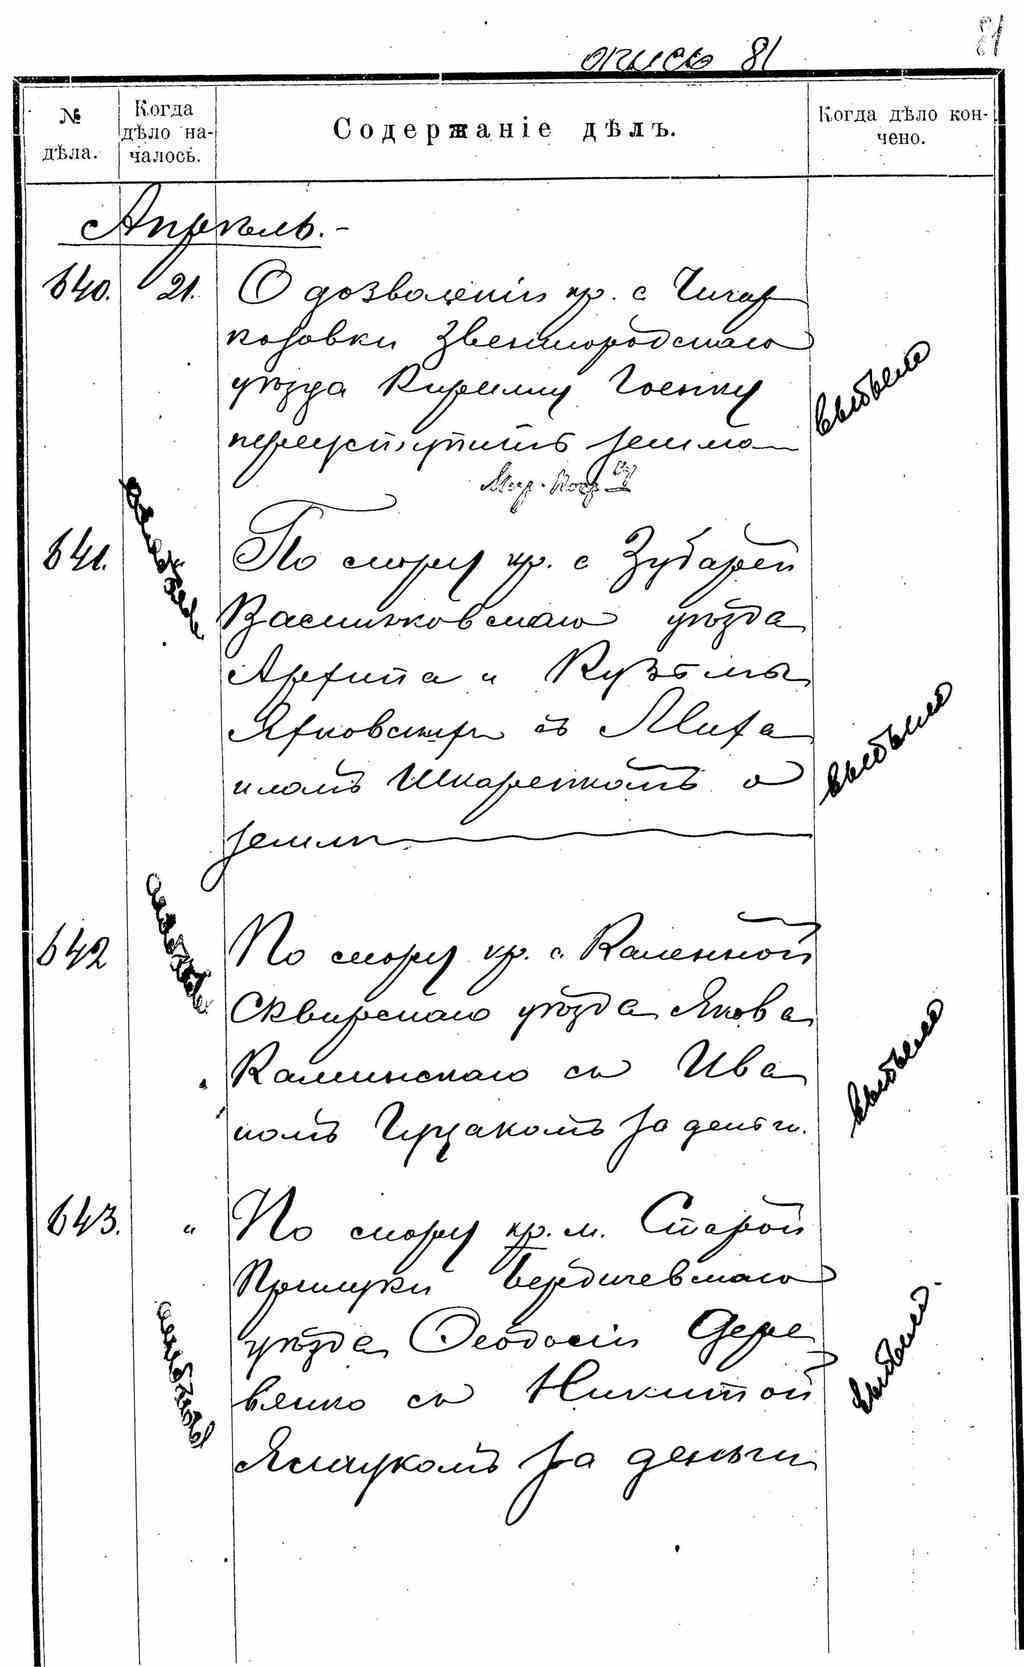 81
опись 81
№ дѣла.
Когда дѣло началось.
Содержаніе дѣлъ.
Когда дѣло кончено.
Апрѣль.-
640. 21. О дозволеніи кр. с Чичир
козовки Звенигородскаго
уѣзда Кириллу Гоенку
переуступить землю
выбыло
641. " По спору кр. с Зубарей
Васильковскаго уѣзда
Архипа и Кузьмы
Яхновскихъ съ Миха
иломъ Шкарепкомъ о
землѣ
выбыло
642 " По спору кр. с. Каленной
Сквирскаго уѣзда Якова
Каминскаго съ Ива
номъ Гуцакомъ за деньги.
выбыло
643. " По спору кр. м. Старой
Прилуки Бердичевскаго
уѣзда Ѳеодосіи Дере
вянко съ Никитой
Ящукомъ за деньги
выбыло.